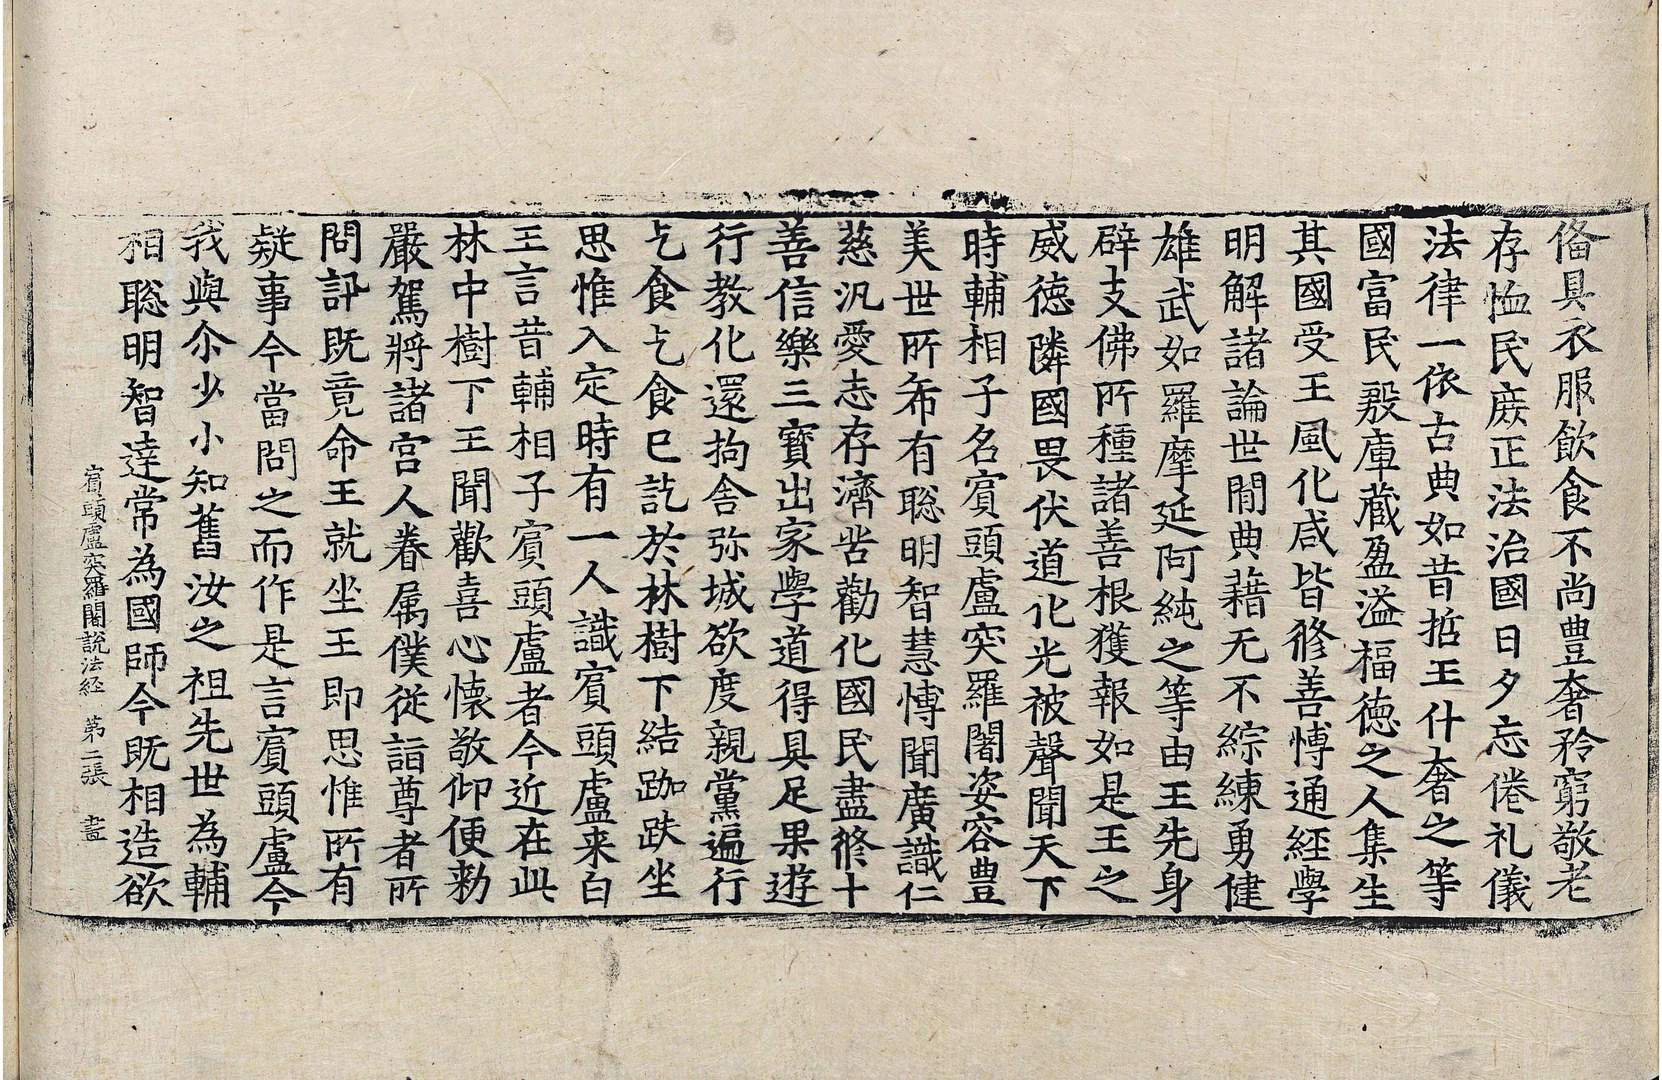 俻具衣服飲食不尚豊奢矜窮敬老
存恤民庶正法治國日夕忘倦礼儀
法律一依古典如昔哲王什奢之等
國富民殷庫藏盈溢福德之人集生
其國受王風化咸皆修善博通經學
明解諸論世間典籍无不綜練勇健
雄武如羅摩延阿純之等由王先身
辟支佛所種諸善根獲報如是王之
威德隣國畏伏道化光被聲聞天下
時輔相子名賓頭盧突羅闍姿容豊
美世所希有聡明智慧博聞廣識仁
慈汎愛志存濟苦勸化國民盡修十
善信樂三寶出家學道得具足果遊
行教化還拘舍弥城欲度親黨遍行
乞食乞食已訖於林樹下結跏趺坐
思惟入定時有一人識賓頭盧来白
王言昔輔相子賓頭盧者今近在此
林中樹下王聞歡喜心懐敬仰便勑
嚴駕將諸宮人眷属僕従詣尊者所
問訊既竟命王就坐王即思惟所有
疑事今當問之而作是言賓頭盧今
我與尒少小知舊汝之祖先世為輔
相聡明智達常為國師今既相造欲
賓頭盧突羅闍說法経 第二張 晝